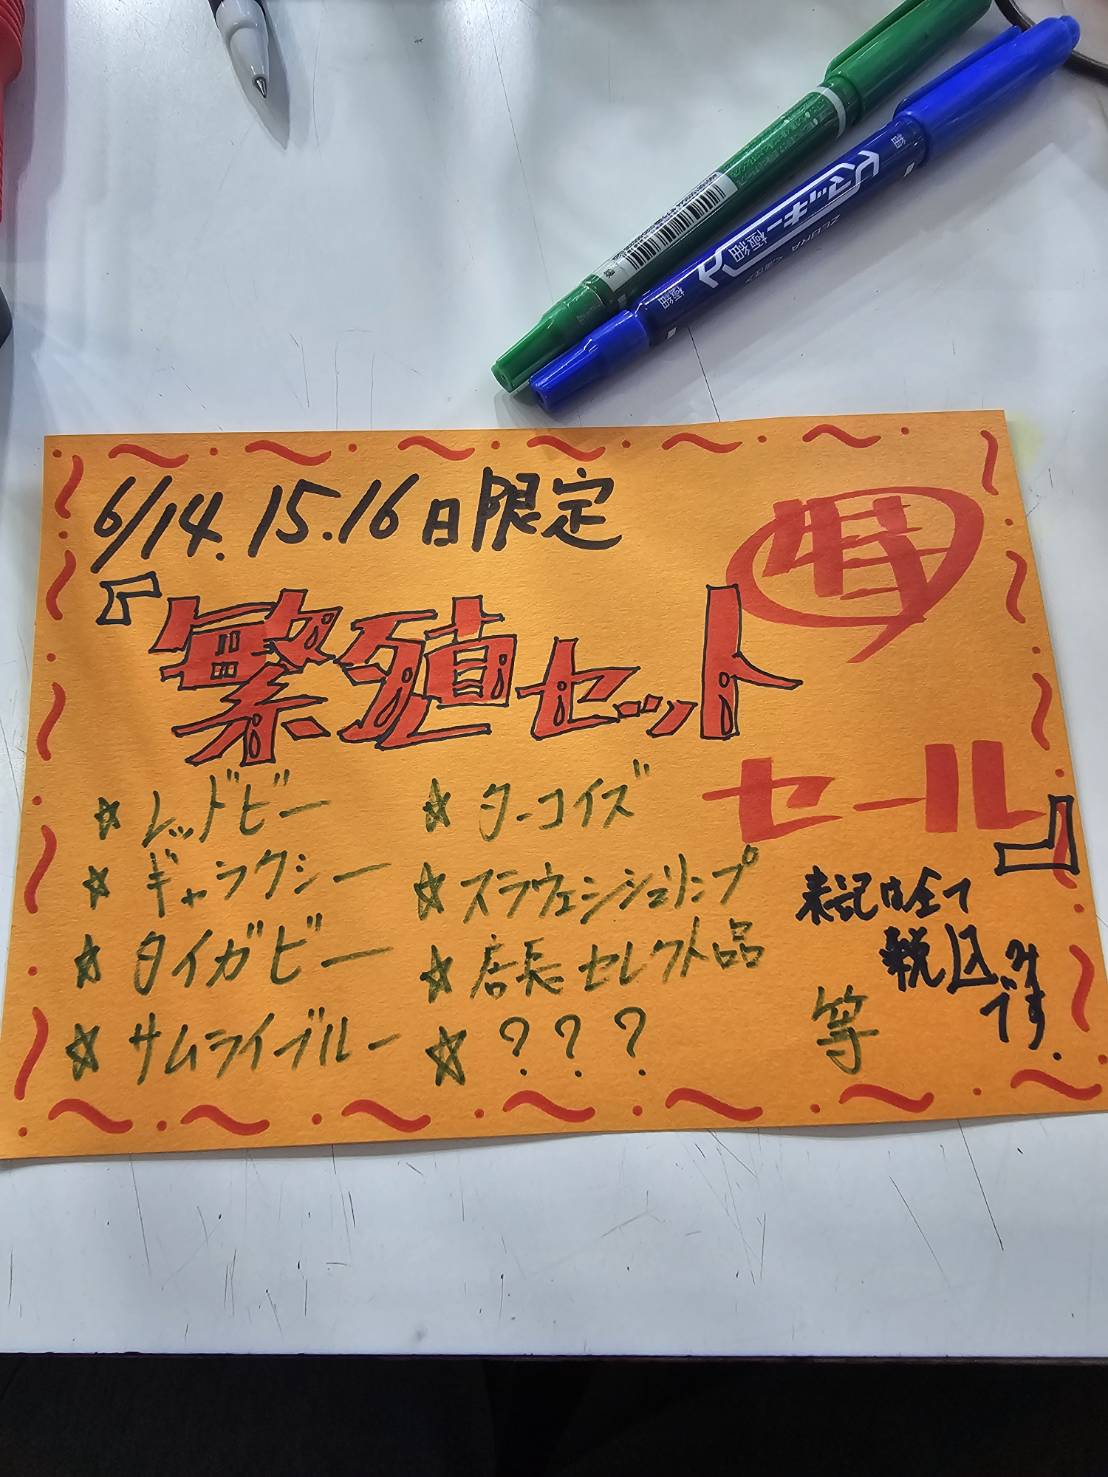 6/14.15.16日限定
特
『繁殖セット
セール』
☆レッドビー
☆ギャラクシー
☆タイガービー
☆サムライブルー
☆ターコイズ
☆スラウェシシュリンプ
☆店長セレクト品
☆???
等
表記は全て
税込み
です.
ZEBRA
マッキー
極細